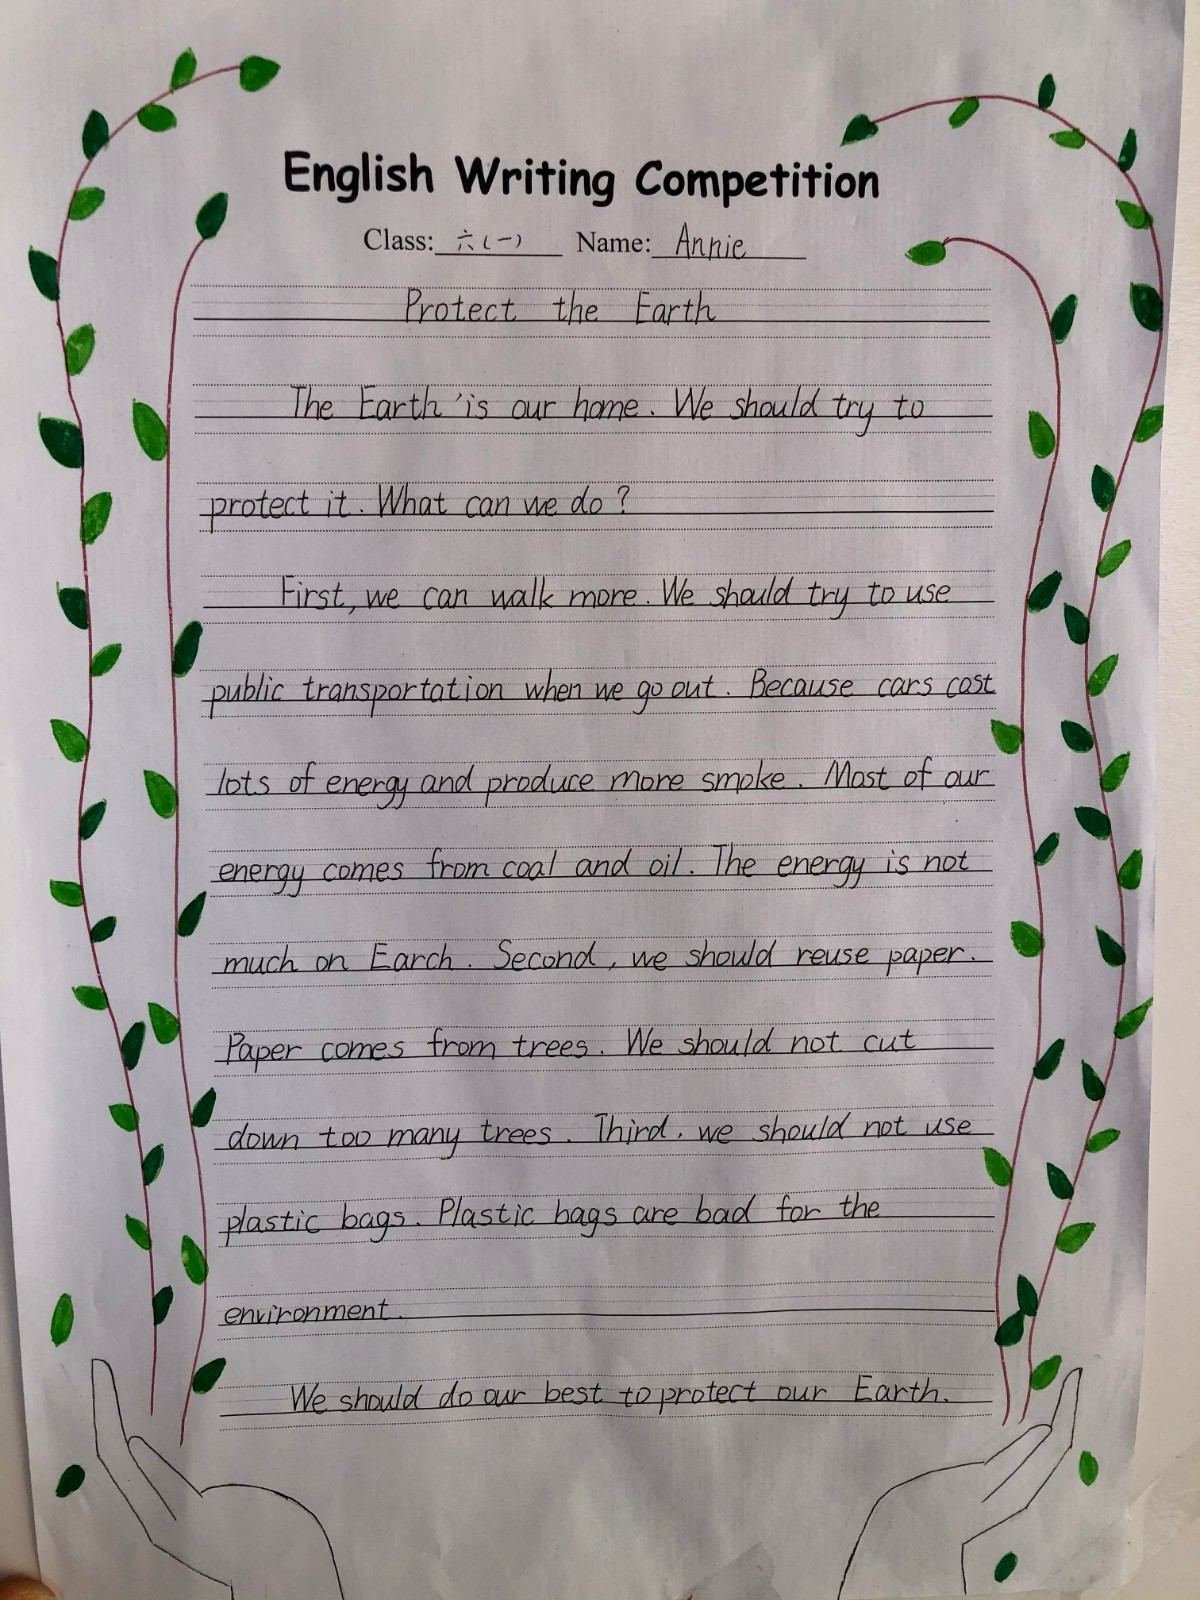 English Writing Competition
Class: 六(一) Name: Annie
Protect the Earth
The Earth 'is our home. We should try to
protect it. What can we do?
First, we can walk more. We should try to use
public transportation when we go out. Because cars cost
lots of energy and produce more smoke. Most of our
energy comes from coal and oil. The energy is not
much on Earch. Second, we should reuse paper.
Paper comes from trees. We should not cut
down too many trees. Third, we should not use
plastic bags. Plastic bags are bad for the
environment.
We should do our best to protect our Earth.